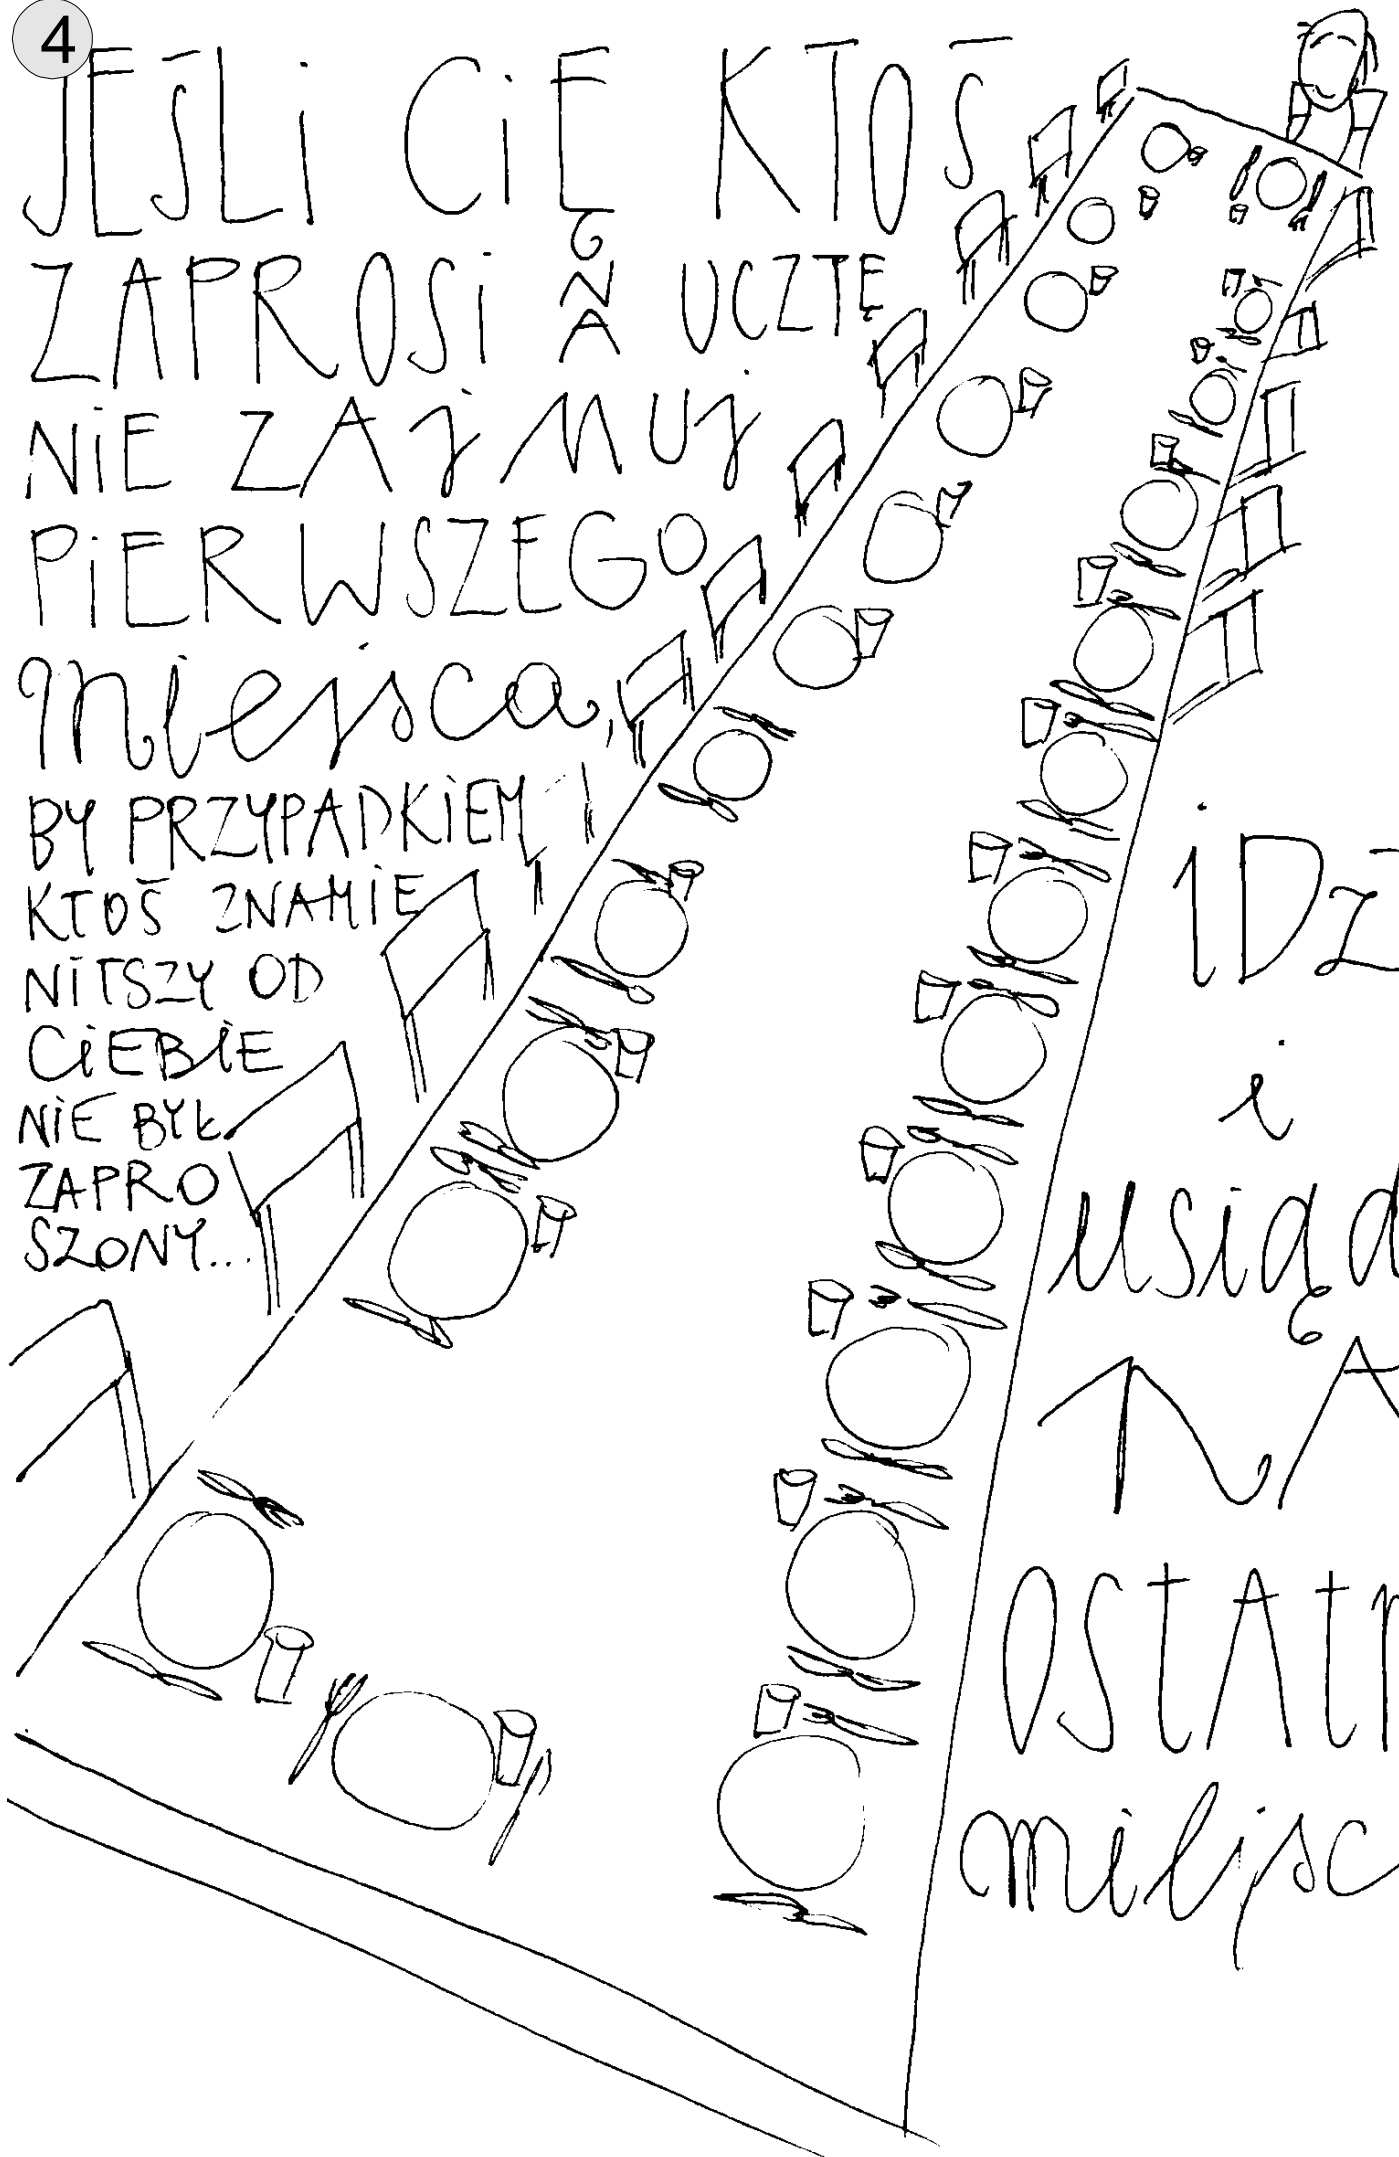 4
JEŚLI CIĘ KTOŚ
ZAPROSI NA UCZTĘ
NIE ZAJMUJ
PIERWSZEGO
miejsca,
BY PRZYPADKIEM
KTOŚ ZNAMIE
NITSZY OD
CIEBIE
NIE BYŁ
ZAPRO
SZONY...
IDZ
i
usiąd
NA
OSTATN
miejsc